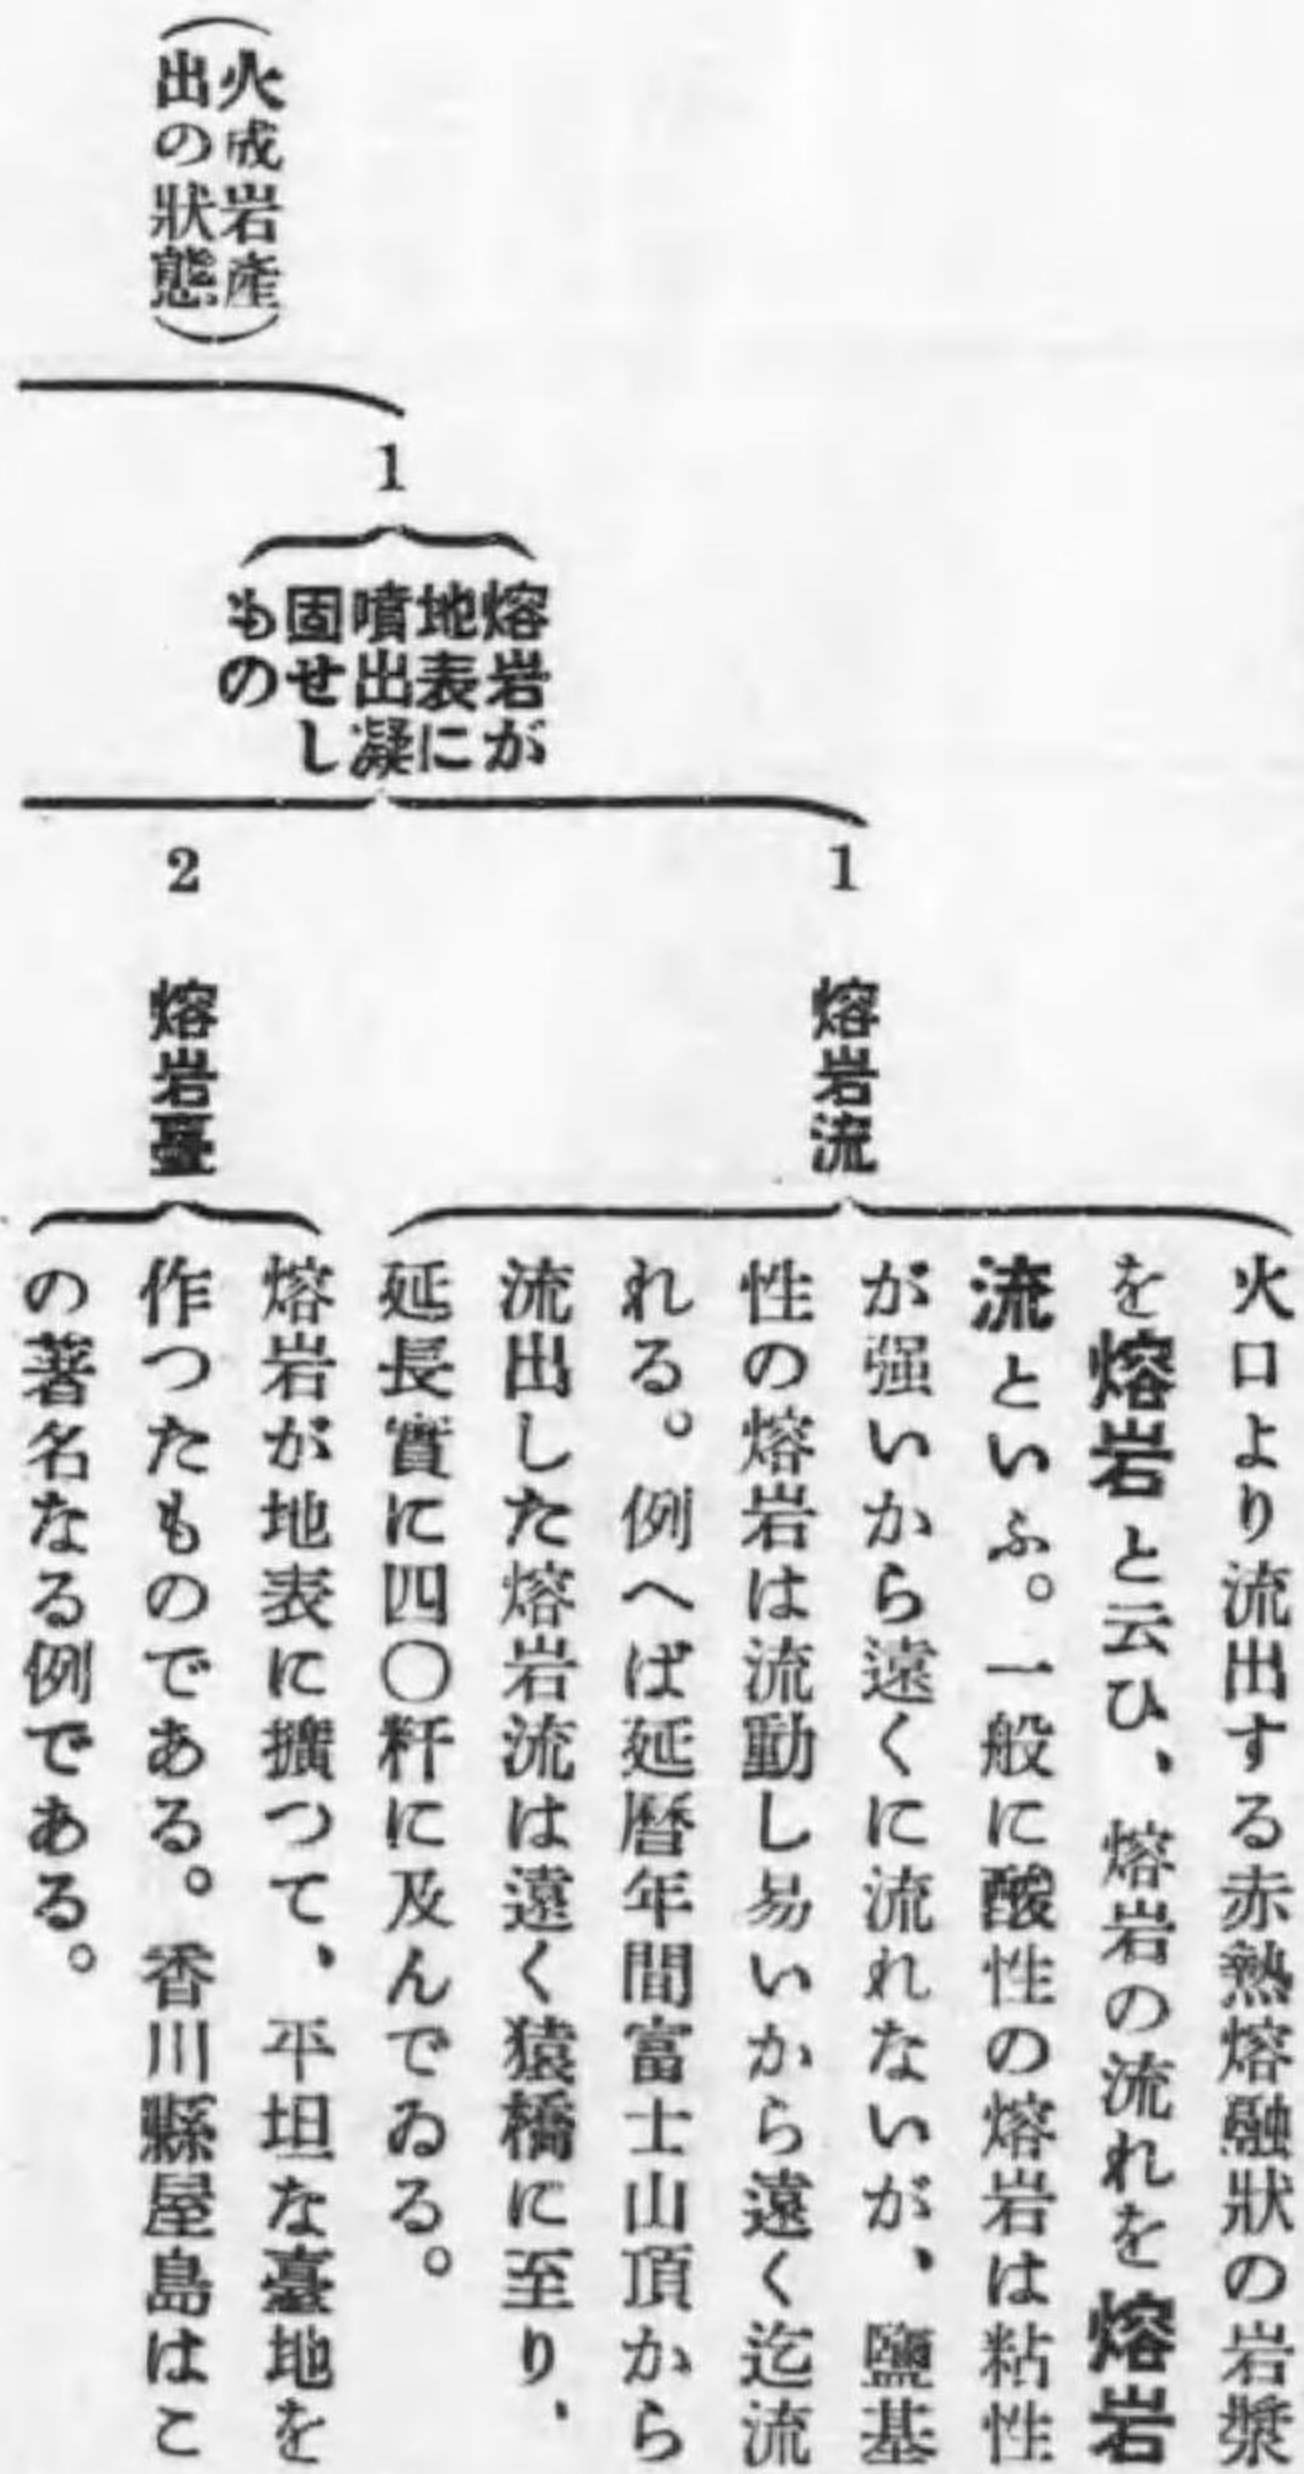 (火成岩産
出の狀態)
1
熔岩が
地表に
噴出凝
固せし
もの
1
熔岩流
火口より流出する赤熱熔融狀の岩漿
を熔岩と云ひ、熔岩の流れを熔岩
流といふ。一般に酸性の熔岩は粘性
が强いから遠くに流れないが、鹽基
性の熔岩は流動し易いから遠く迄流
れる。例へば延曆年間富士山頂から
流出した熔岩流は遠く猿橋に至り、
延長實に四〇粁に及んでゐる。
2
熔岩臺
熔岩が地表に擴つて、平坦な臺地を
作つたものである。香川縣屋島はこ
の著名なる例である。